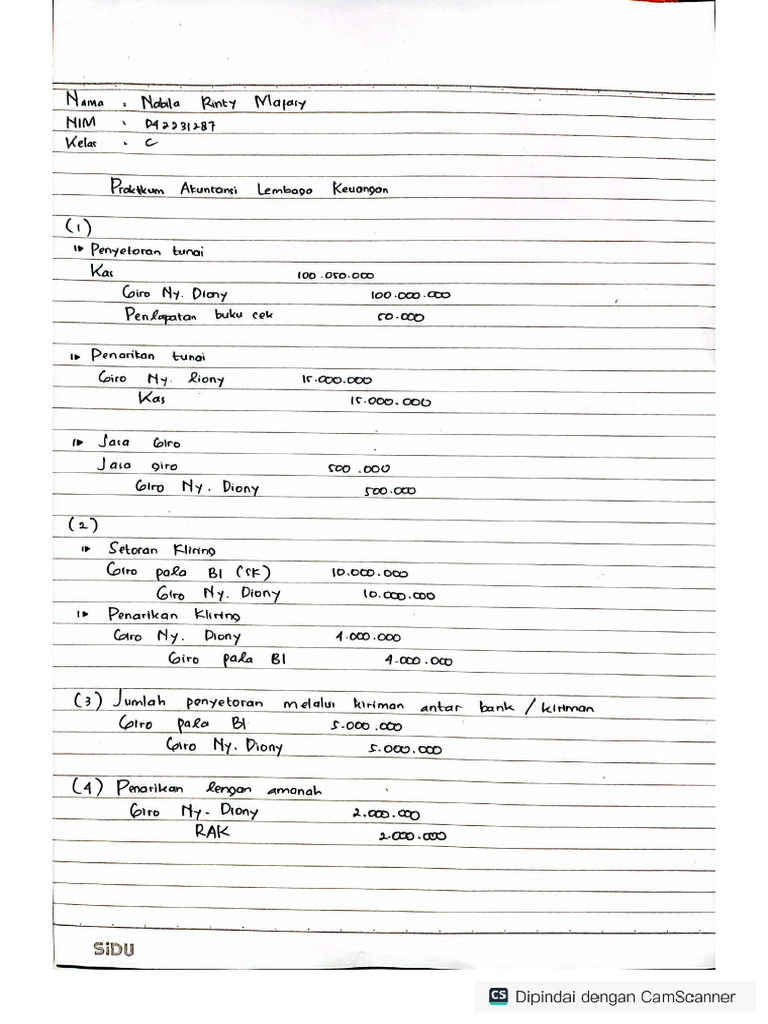 Nama : Nabila Rinty Majasy
NIM : 042231287
Kelas : C
Praktikum Akuntansi Lembaga Keuangan
(1)
Penyetoran tunai
Kas 100.050.000
Giro Ny. Diony 100.000.000
Pendapatan buku cek 50.000
Penarikan tunai
Giro Ny. Diony 15.000.000
Kas 15.000.000
Jasa Giro
Jasa giro 500.000
Giro Ny. Diony 500.000
(2)
Setoran Kliring
Giro pada BI (SK) 10.000.000
Giro Ny. Diony 10.000.000
Penarikan Kliring
Giro Ny. Diony 4.000.000
Giro pada BI 4.000.000
(3) Jumlah penyetoran melalui kiriman antar bank / kiriman
Giro pada BI 5.000.000
Giro Ny. Diony 5.000.000
(4) Penarikan dengan amanah
Giro Ny. Diony 2.000.000
RAK 2.000.000
SiDU
CS Dipindai dengan CamScanner